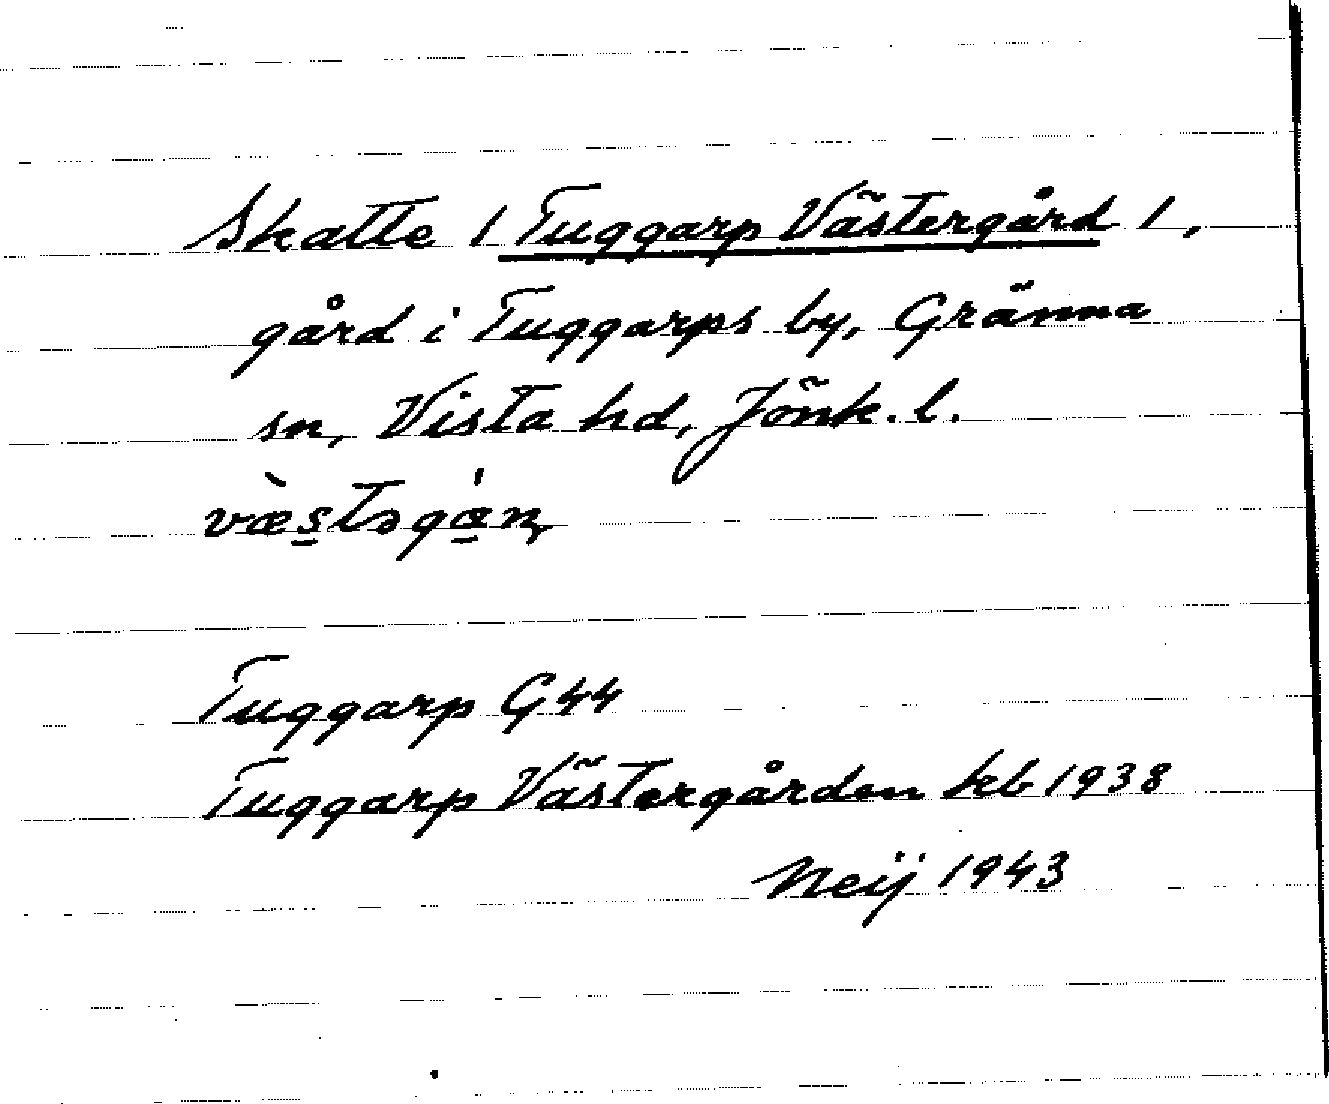 Skatte / Tuggarp Västergård /,
gård i Tuggarps by, Gränna
sn, Vista hd, Jönk. l.
Tuggarp G44
Tuggarp Västergården kb 1938
Neij 1943